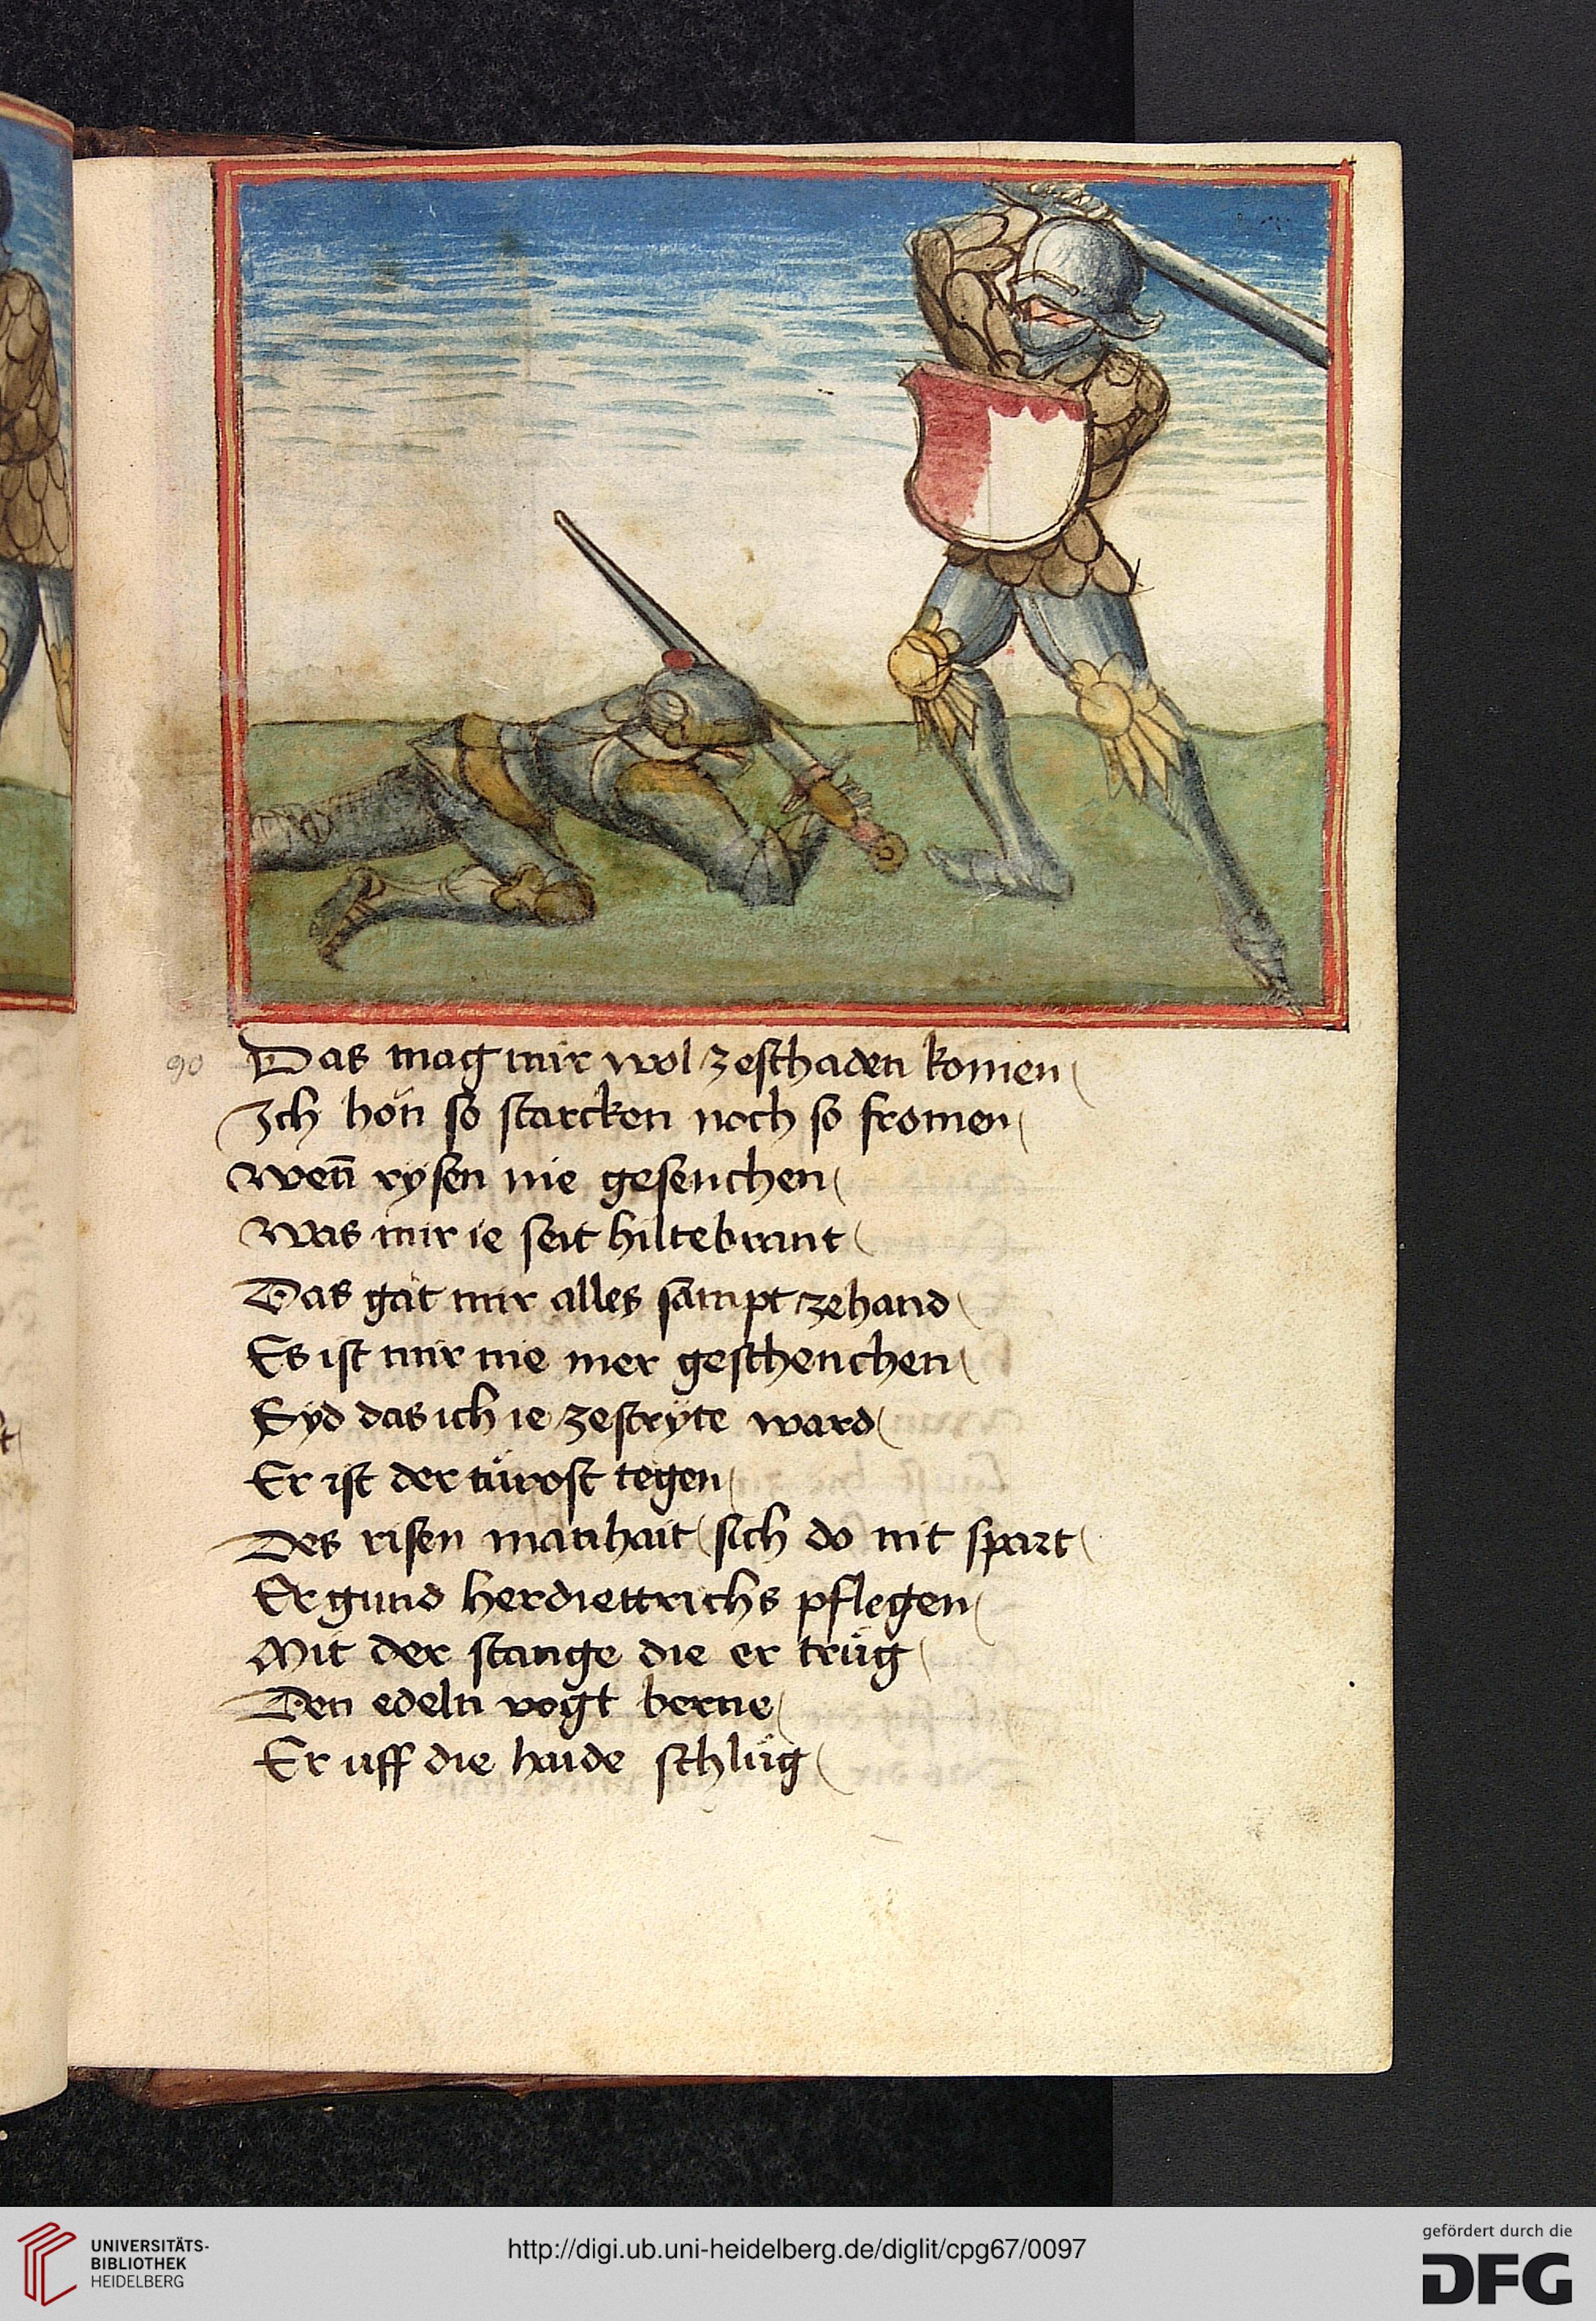 90
Das mag mir wol zeschaden komen
Ich hön so starcken noch so fromen
Wen̄ rysen nie gesenchen
Was mir ie seit hiltebrant
Das gät mir alles sampt zehand
Es ist mir nie mer geschenchen
Syd das ich ie zestryte ward
Er ist der türost tegen
Des risen manhait sich do nit spart
Er gund her diettrichs pflegen
Mit der stange die er trüg
Den edeln vogt berne
Er uff die haide schlüg
UNIVERSITÄTS-
BIBLIOTHEK
HEIDELBERG
http://digi.ub.uni-heidelberg.de/diglit/cpg67/0097
gefördert durch die
DFG